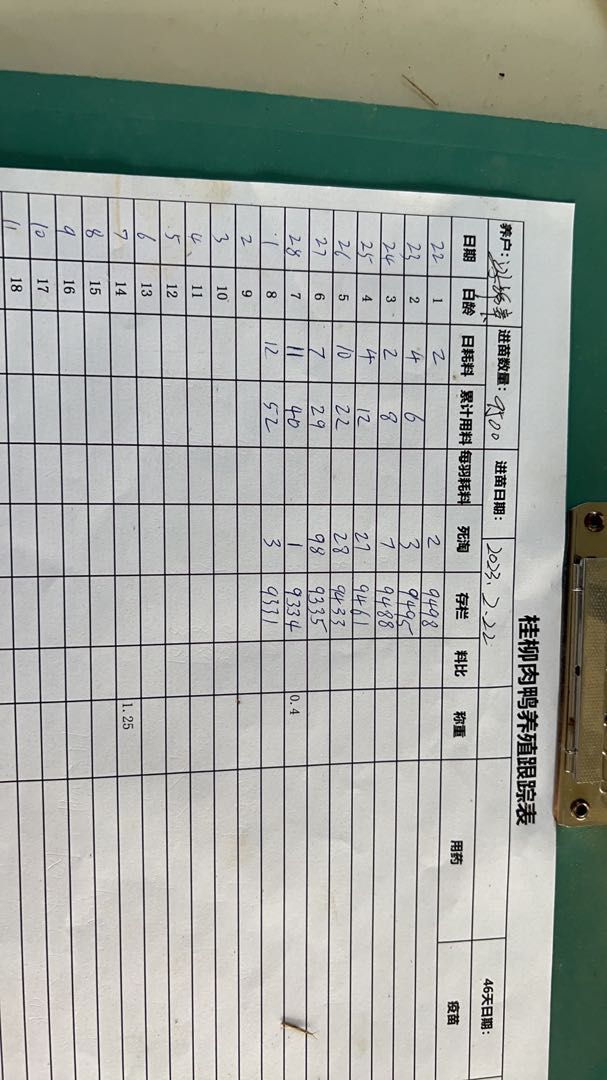 桂柳肉鸭养殖跟踪表
养户: 进苗数量: 9500 进苗日期: 2023.2.22 46天日期:
日期 日龄 日耗料 累计用料 每羽耗料 死淘 存栏 料比 称重 用药 疫苗
22 1 2 2 9498
23 2 4 6 3 9495
24 3 2 8 7 9488
25 4 4 12 27 9461
26 5 10 22 28 9433
27 6 7 29 98 9335
28 7 11 40 1 9334 0.4
1 8 12 52 3 9331
2 9
3 10
4 11
5 12
6 13
7 14 1.25
8 15
9 16
10 17
11 18